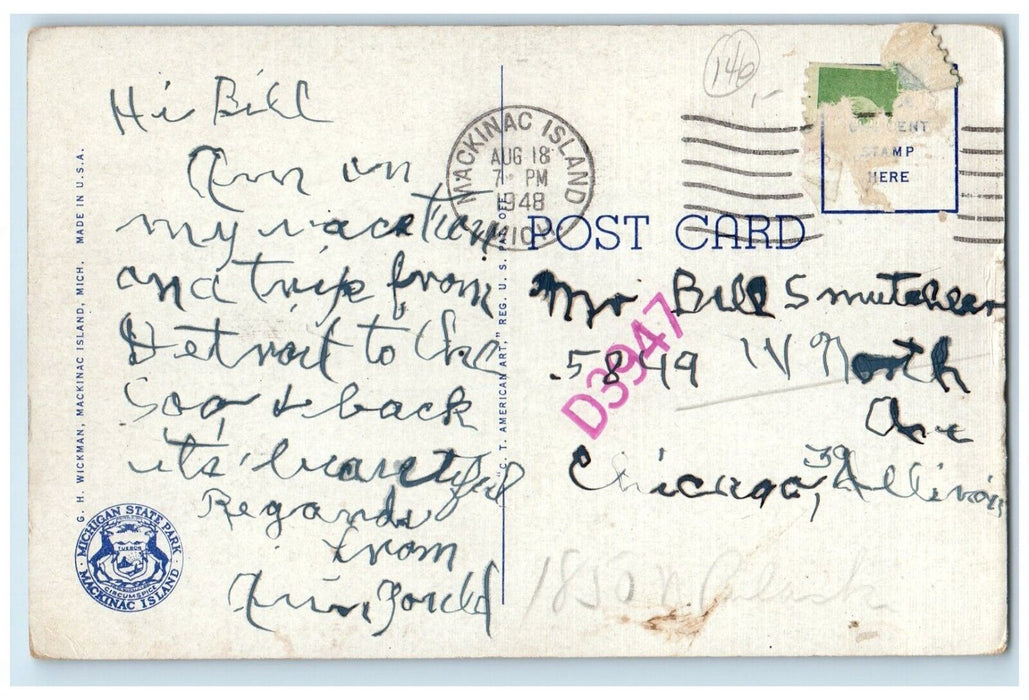 Hi Bill
Am on
my vacation
and trip from
Detroit to the
Soo & back
its beautiful
Regards
from
G. H. WICKMAN, MACKINAC ISLAND, MICH. MADE IN U.S.A.
MICHIGAN STATE PARK
MACKINAC ISLAND
TUEBOR
CIRCUMSPICE
"C. T. AMERICAN ART," REG. U. S. PAT. OFF.
MACKINAC ISLAND
AUG 18
7 PM
1948
MICH.
146
CENT
STAMP
HERE
POST CARD
Mr Bill Smutchler
5849 W North
Ave
Chicago, 39 Illinois
D3947
1850 N